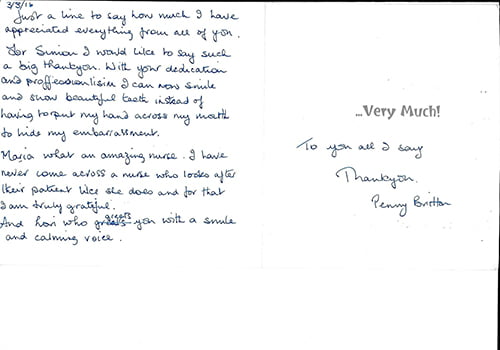 3/3/16
Just a line to say how much I have
appreciated everything from all of you.
For Simion I would like to say such
a big thankyou. With your dedication
and proffessionlisim I can now smile
and show beautiful teeth instead of
having to put my hand across my mouth
to hide my embarrassment.
Maria what an amazing nurse. I have
never come across a nurse who looks after
their patient like she does and for that
I am truly grateful.
And Lori who greets you with a smile
and calming voice.
...Very Much!
To you all I say
Thankyou.
Penny Britton